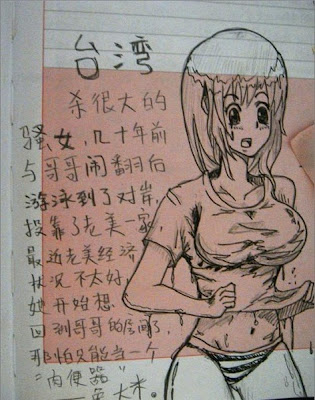 台湾
杀很大的
骚女，几十年前
与哥哥闹翻后
游泳到了对岸，
投靠了老美一家
最近老美经济
状况不太好，
她开始想
回到哥哥的
那怕只能当一个
"肉便器"